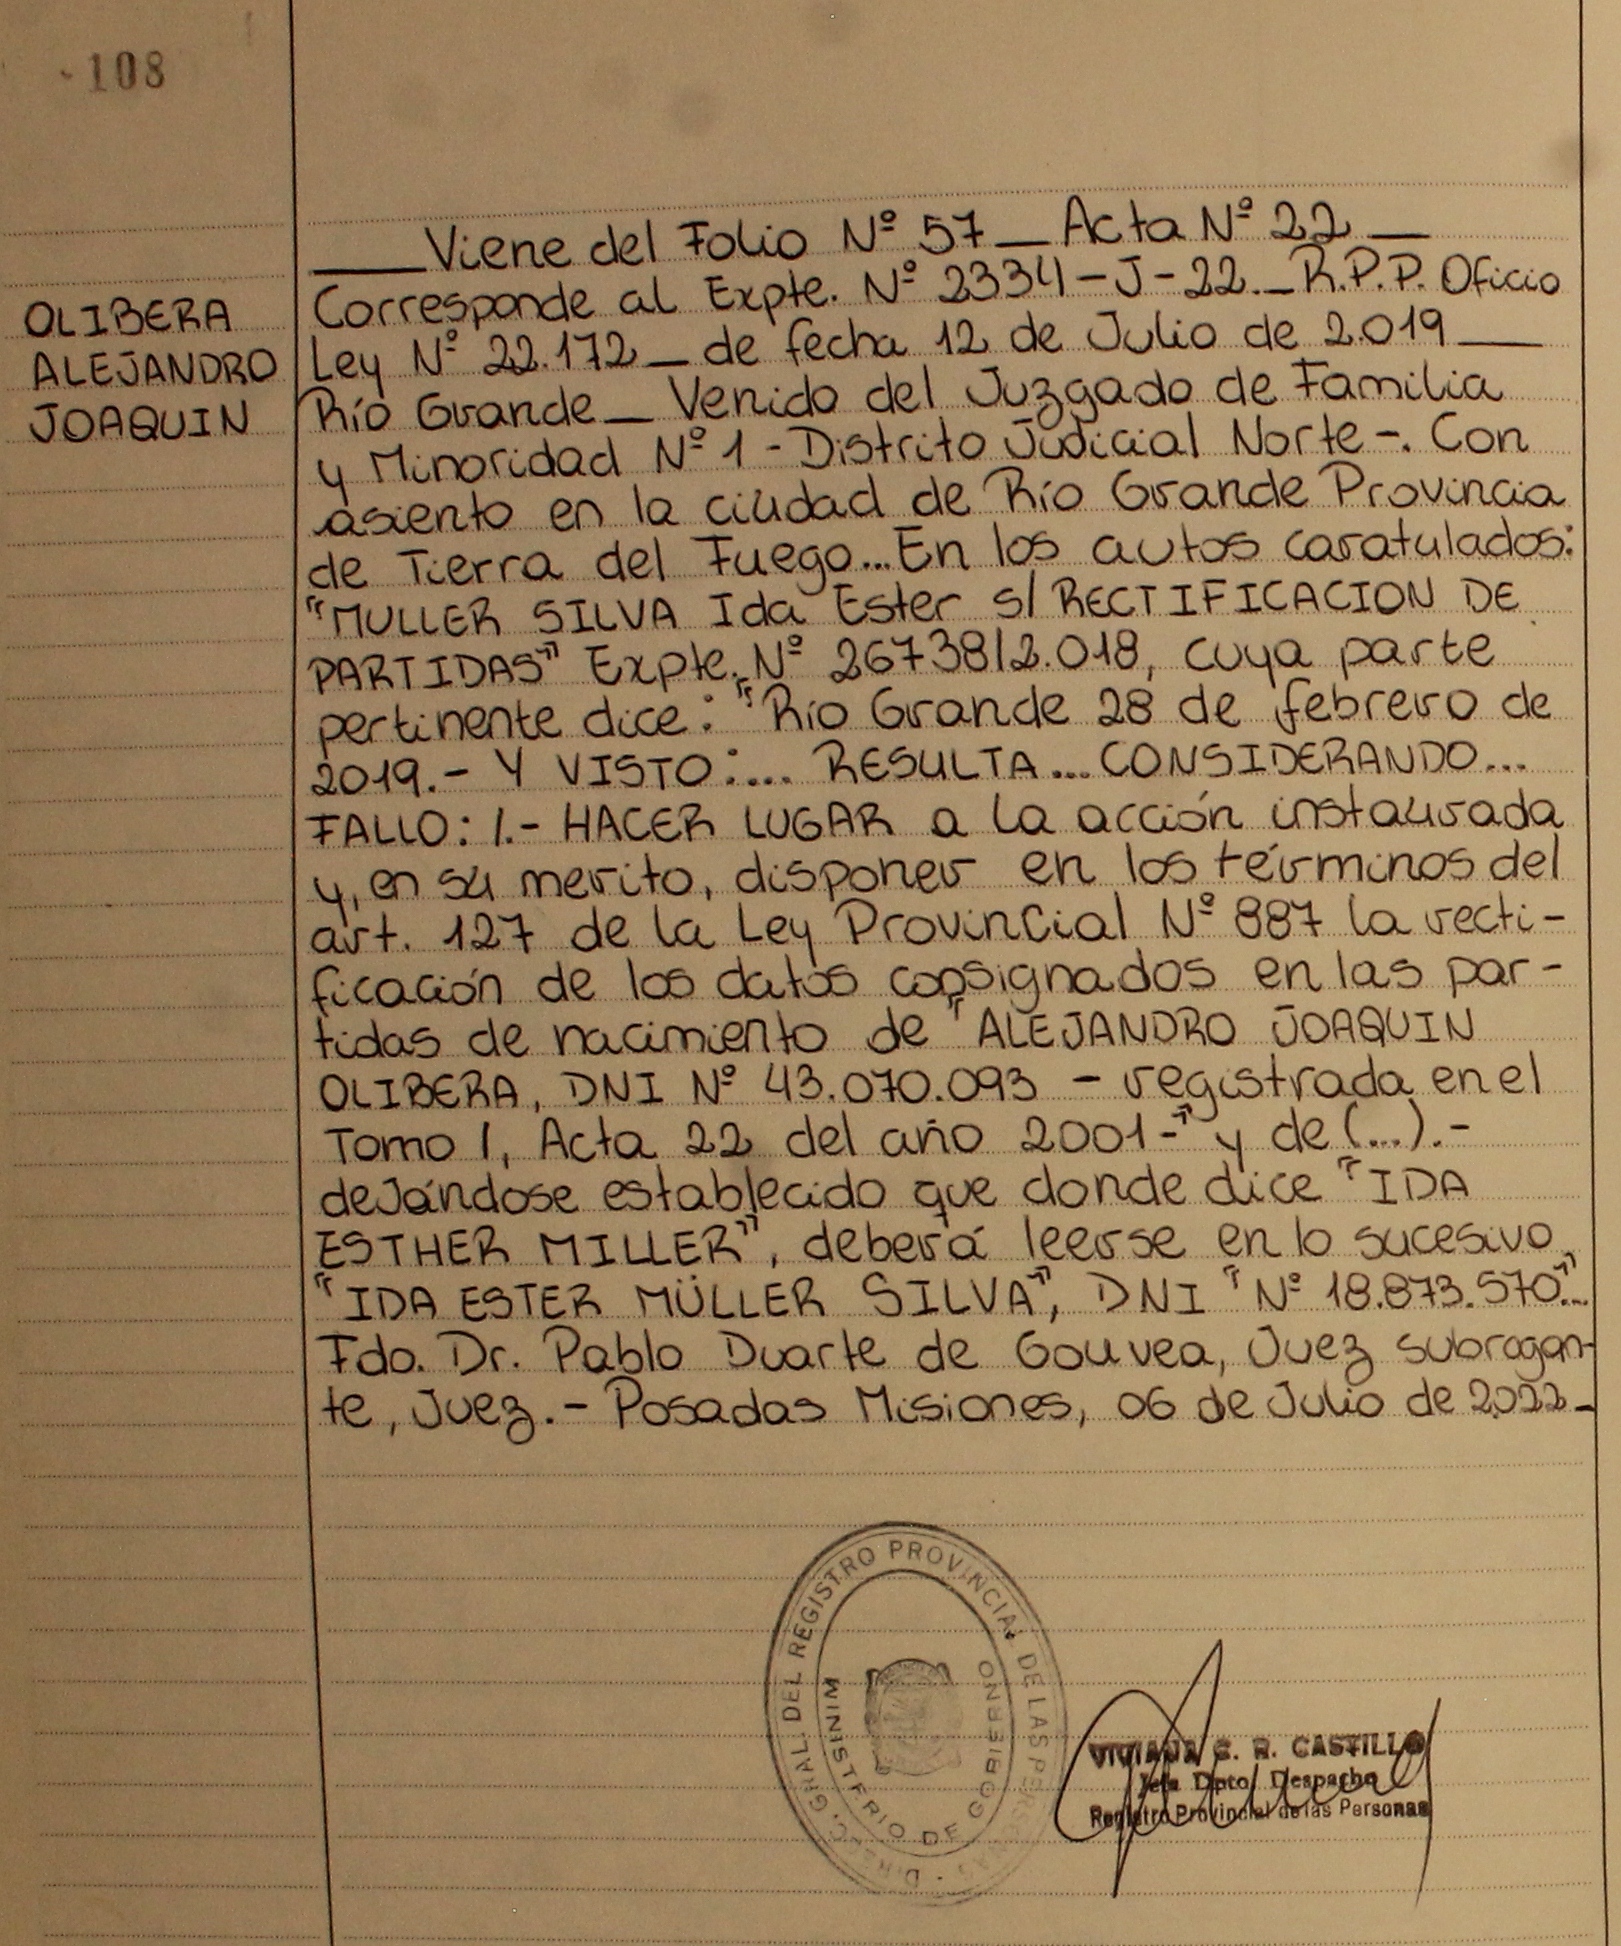 108
OLIBERA
ALEJANDRO
JOAQUIN
___Viene del Folio Nº 57_Acta Nº 22_
Corresponde al Expte. Nº 2334-J-22._R.P.P. Oficio
Ley Nº 22.172_de fecha 12 de Julio de 2.019__
Río Grande_Venido del Juzgado de Familia
y Minoridad Nº 1 - Distrito Judicial Norte-. Con
asiento en la ciudad de Río Grande Provincia
de Tierra del Fuego... En los autos caratulados:
"MULLER SILVA Ida Ester s/ RECTIFICACION DE
PARTIDAS" Expte. Nº 26738/2.018, cuya parte
pertinente dice: "Río Grande 28 de febrero de
2019.- Y VISTO:.... RESULTA... CONSIDERANDO...
FALLO: 1.- HACER LUGAR a la acción instaurada
y, en su merito, disponer en los términos del
art. 127 de la Ley Provincial Nº 887 la recti-
ficación de los datos consignados en las par-
tidas de nacimiento de "ALEJANDRO JOAQUIN
OLIBERA, DNI Nº 43.070.093 - registrada en el
Tomo 1, Acta 22 del año 2001-" y de (...).-
dejándose establecido que donde dice "IDA
ESTHER MILLER", deberá leerse en lo sucesivo
"IDA ESTER MÜLLER SILVA", DNI "Nº 18.873.570"...
Fdo. Dr. Pablo Duarte de Gouvea, Juez subrogan-
te, Juez.- Posadas Misiones, 06 de Julio de 2.022-
DIRECC. GRAL. DEL REGISTRO PROVINCIAL DE LAS PERSONAS
MINISTERIO DE GOBIERNO
VIVIANA G. R. CASTILLO
Jefa Dpto. Despacho
Registro Provincial de las Personas